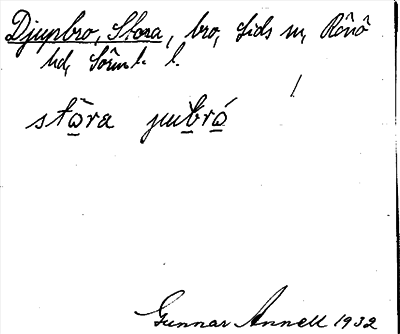 Djupbro, Stora, bro, Lids sn, Rönö
hd, Sörml. l.
stōra jubró
Gunnar Annell 1932